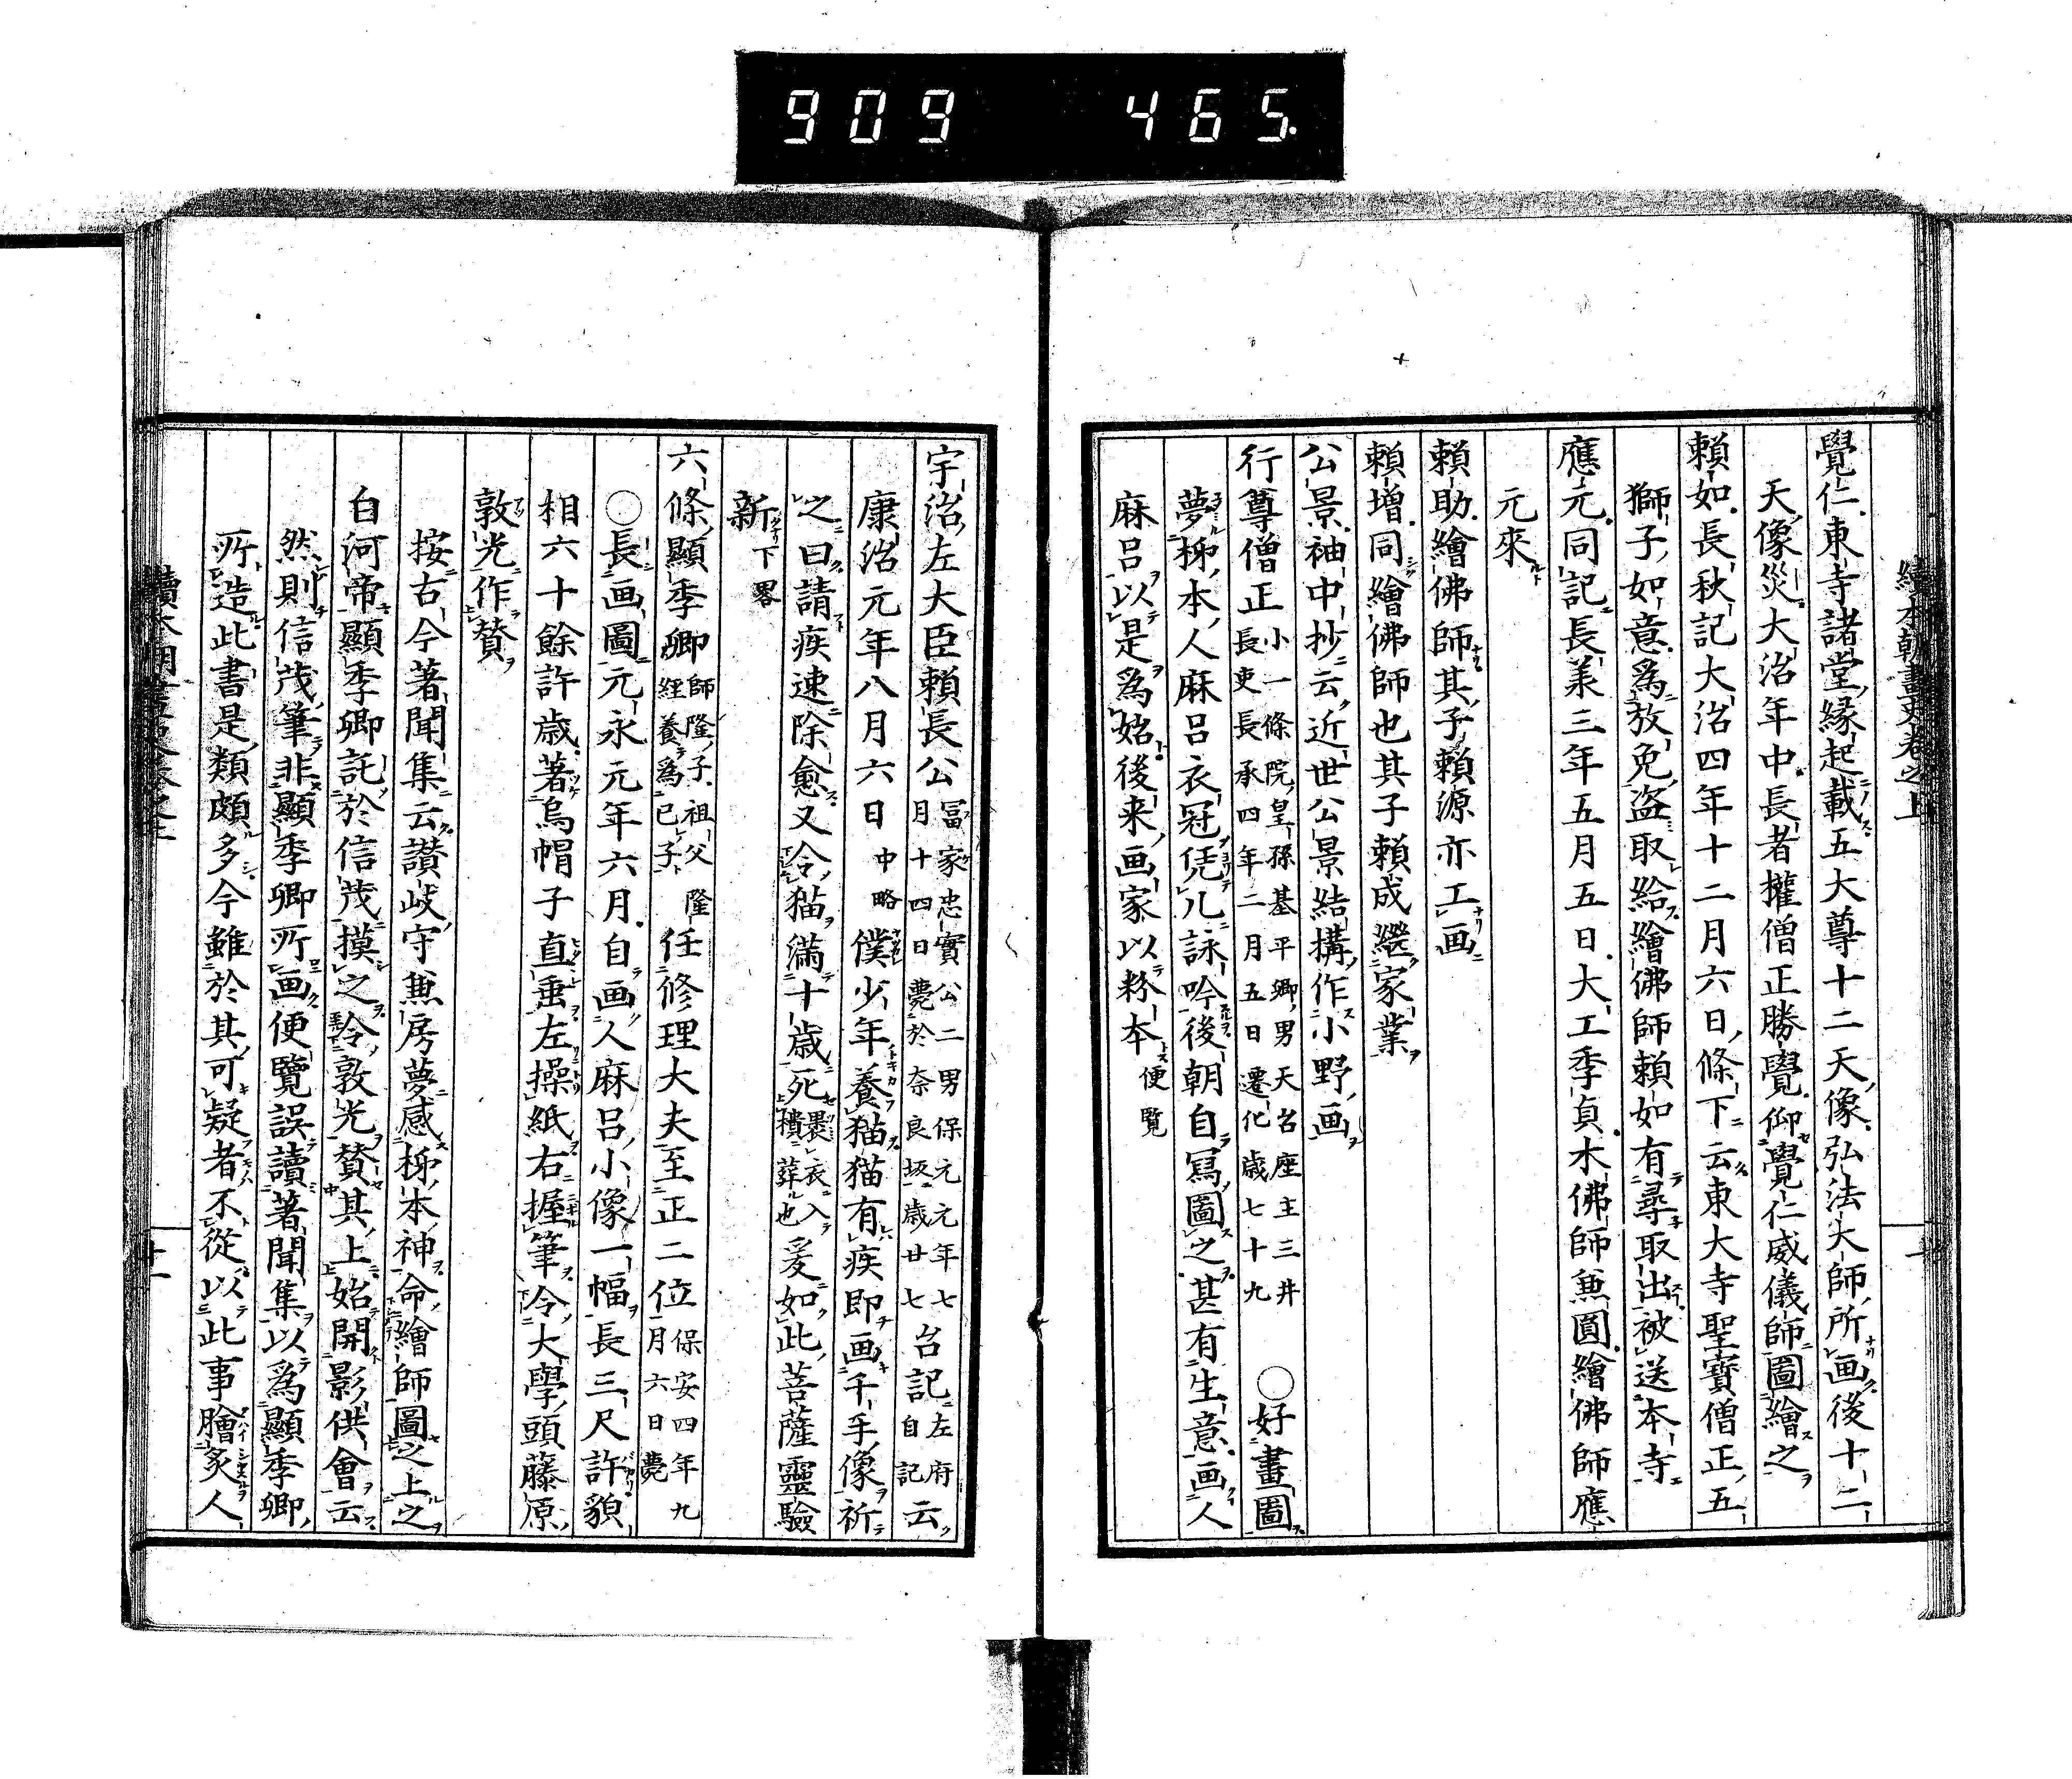 909 465.
續本朝畫史卷之上
覺仁東寺諸堂緣起載五大尊十二天像弘法大師所画後十二
天像災大治年中長者權僧正勝覺仰覺仁威儀師圖繪之
賴如長秋記大治四年十二月六日條下云東大寺聖寶僧正五
獅子如意為放免盜取給繪佛師賴如有尋取出被送本寺
應元同記長義三年五月五日大工季貞木佛師兼圓繪佛師應
元來
賴助繪佛師其子賴源亦工画
賴增同繪佛師也其子賴成繼家業
公景袖中抄云近世公景結構作小野画
行尊僧正小一條院皇孫基平卿男天台座主三井長吏長承四年二月五日遷化歲七十九○好畫圖
夢柹本人麻呂衣冠凭几詠吟後朝自寫圖之甚有生意画人
麻呂以是為始後來画家以粉本便覽
宇治左大臣賴長公冨家忠實公二男保元元年七月十四日薨於奈良坂歲廿七台記左府自記云
康治元年八月六日中略僕少年養猫猫有疾即画千手像祈
之曰請疾速除愈又令猫滿十歲死裹衣入櫃葬也爰如此菩薩靈驗
新下畧
六條顯季卿師隆子祖父隆経養為已子任修理大夫至正二位保安四年九月六日薨
○長画圖元永元年六月自画人麻呂小像一幅長三尺許貌
相六十餘許歲著烏帽子直垂左操紙右握筆令大學頭藤原
敦光作贊
按古今著聞集云讚岐守兼房夢感柹本神命繪師圖之上之
白河帝顯季卿託於信茂摸之令敦光贊其上始開影供會云
然則信茂筆非顯季卿所画便覽誤讀著聞集以為顯季卿
所造此書是類頗多今雖於其可疑者不從以此事膾炙人
廿一